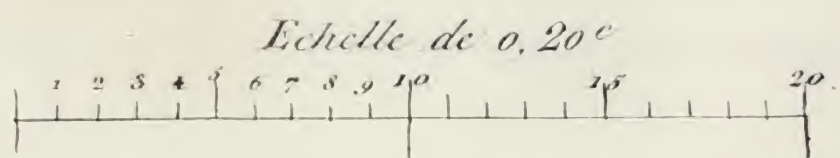 Echelle de 0,20c
1 2 3 4 5 6 7 8 9 10 15 20.